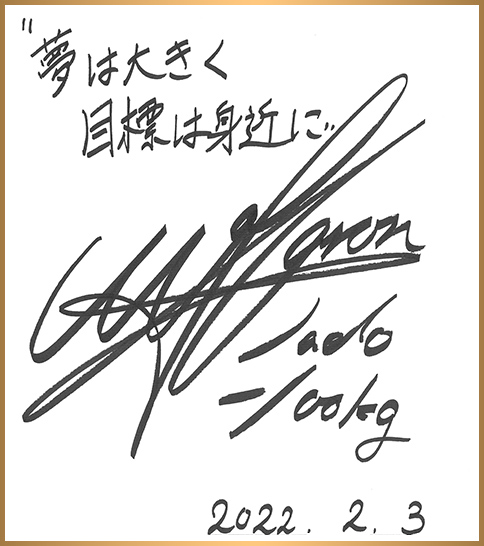 "夢は大きく
目標は身近に"
Aaron
Judo
-100kg
2022. 2. 3